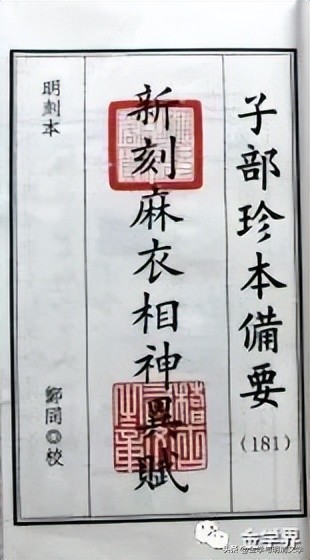 子部珍本備要
(181)
新刻麻衣相神異賦
明刻本
鄭同◎校
金学界
头条@金学与明清文学